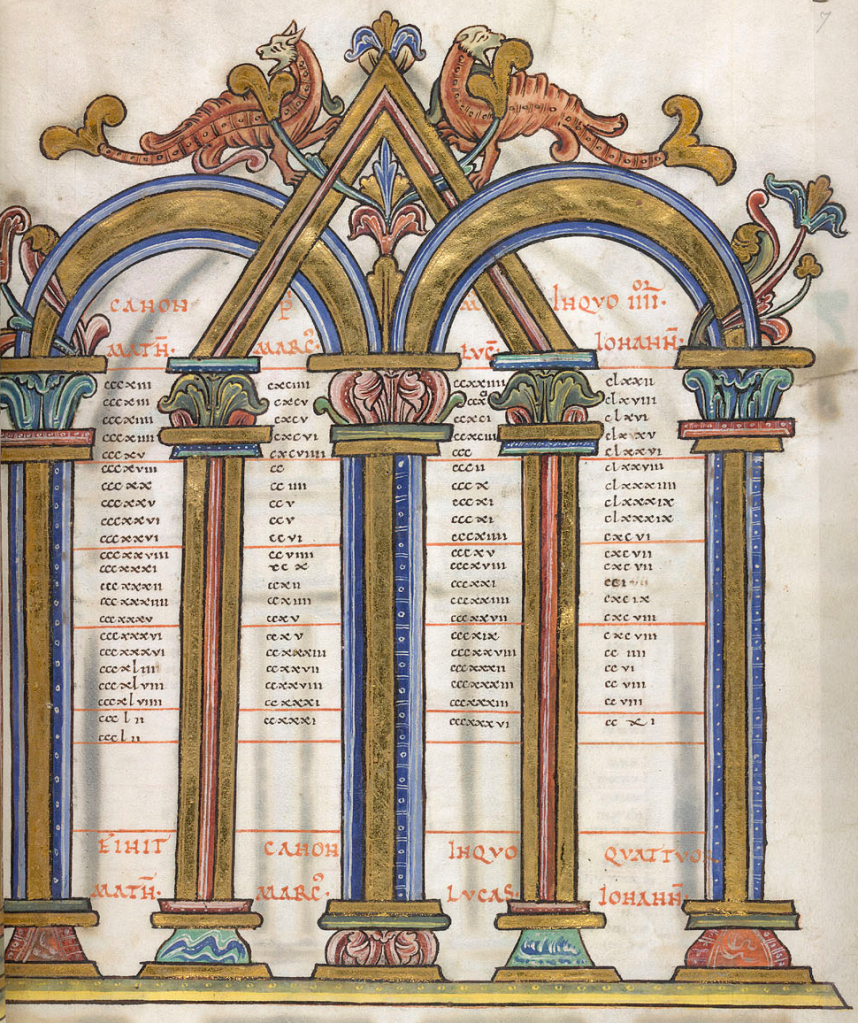 CANON P̄R M INQUO IIII.
MATH̄. MARC̄. LUC̄. IOHANN̄.
cccxiiii cxciiii cccxxiiii clxxii
cccxiii cxcv clxviii
cccxiiii cxcv ccxci clxvi
cccxiiii cxcvi ccxciiii clxxv
cccxv cxcviiii ccc clxxvi
cccxviii cc cccii clxxviii
cccxx cciiii cccx clxxxiiii
cccxxv ccv cccxi clxxxix
cccxxvi ccv cccxi clxxxix
cccxxvi ccvi cccxiiii cxcvi
cccxxviiii ccviiii cccxv cxcvii
cccxxxi ccx cccxviii cxcvii
cccxxxii ccxii cccxxi
cccxxxiiii ccxiiii cccxxiiii cxcix
cccxxxv ccxv cccxxvii cxcviii
cccxxxvi ccxv cccxix cxcviii
cccxxxvi ccxxxiii cccxxviii cciiii
cccxliii ccxxvii cccxxxii ccvi
cccxlviii ccxxviii cccxxxiii ccviii
cccxlviii ccxxxi cccxxxiii ccviii
cccl ii ccxxxi cccxxxvi ccxi
cccl ii
FINIT CANON INQUO QUATTUOR
MATH̄. MARC̄. LUCAS. IOHANN̄.